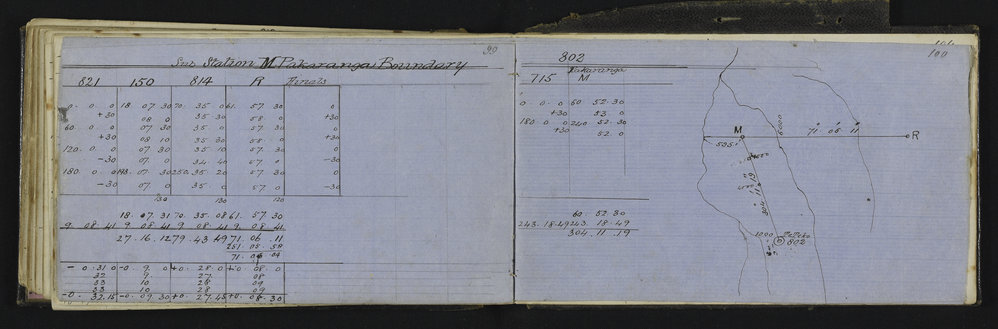 90
Station M Pakaranga Boundary
821 150 814 R Finals
0. 0. 0 18 07.30 70. 35. 0 61. 57. 30 0
+30 08 0 35. 30 58. 0 +30
60. 0. 0 07 30 35. 0 57. 30 0
+30 08 10 35. 30 58. 0 +30
120. 0. 0 07. 30 35. 10 57. 30 0
-30 07. 0 34. 40 57. 0 -30
180. 0. 0 198. 07. 30 250. 35. 20 57. 30 0
-30 07. 0 35. 0 57. 0 -30
130 130 120
18. 07. 31 70. 35. 08 61. 57. 30
9. 08. 41 9. 08. 41 9. 08. 41 9. 08. 41
27. 16. 12 79. 43. 49 71. 06. 11
251. 05. 58
71. 06. 04
-0. 31. 0 -0. 9. 0 +0. 28. 0 +0. 08. 0
32 9. 27. 08
33 10 28 09
33 10 28 09
-0. 32.15 -0. 09. 30 +0. 27. 45 +0. 08. 30
100
802
Pakaranga
715 M
0. 0. 0 60. 52. 30
+30 53. 0
180. 0. 0 240. 52. 30
+30 52. 0
60. 52. 30
243. 18. 49 243. 18. 49
304. 11. 19
M
535
6000
71. 06. 11
R
304. 11. 19
1000
802